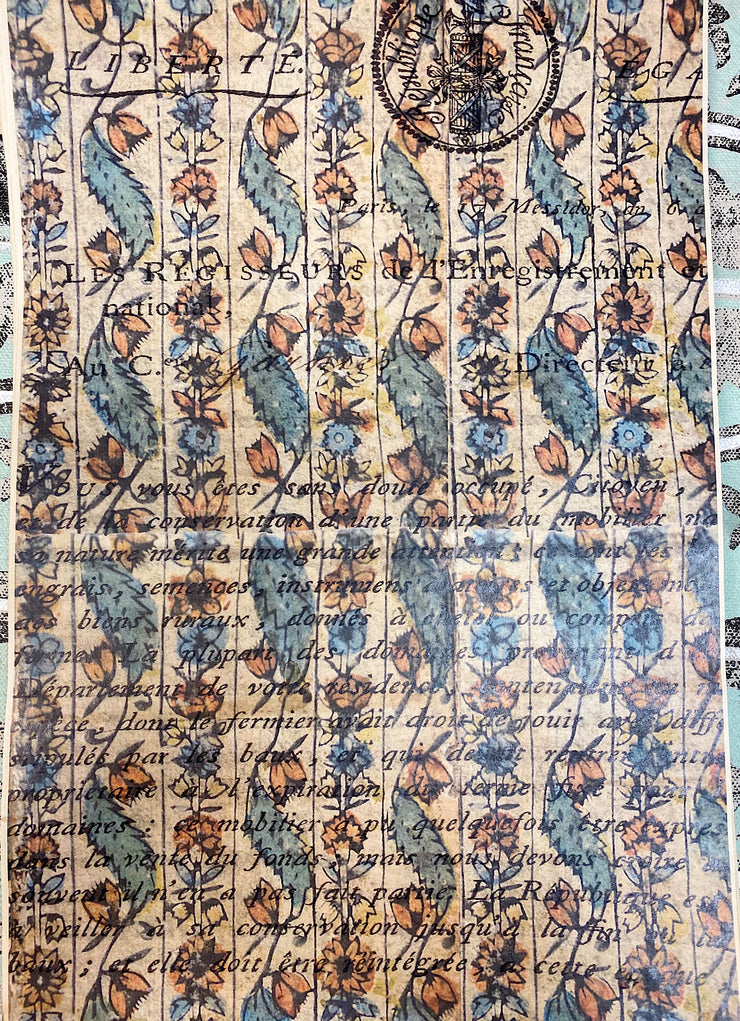 République Française
LIBERTÉ. EGA
Paris, le 17 Messidor, an 6 d
LES RÉGISSEURS de l'Enregistrement et
national,
Au C.en Directeur à
Vous vous êtes sans doute occupé, Citoyen,
et de la conservation d'une partie du mobilier na
sa nature mérite une grande attention; ce sont les
engrais, semences, instrumens aratoires et objets mo
des biens ruraux, donnés à cheptel ou compris da
ferme. La plupart des domaines provenant d
Département de votre résidence, contenaient un
espèce, dont le fermier avait droit de jouir avec diffé
stipulés par les baux, et qui devait
propriétaire à l'expiration du terme fixé pour
domaines: ce mobilier a pu quelquefois être expres
dans la vente du fonds; mais nous devons croire
souvent il n'en a pas fait partie. La République es
à veiller à sa conservation jusqu'à la fin
baux; et elle doit être réintégrée, à cette